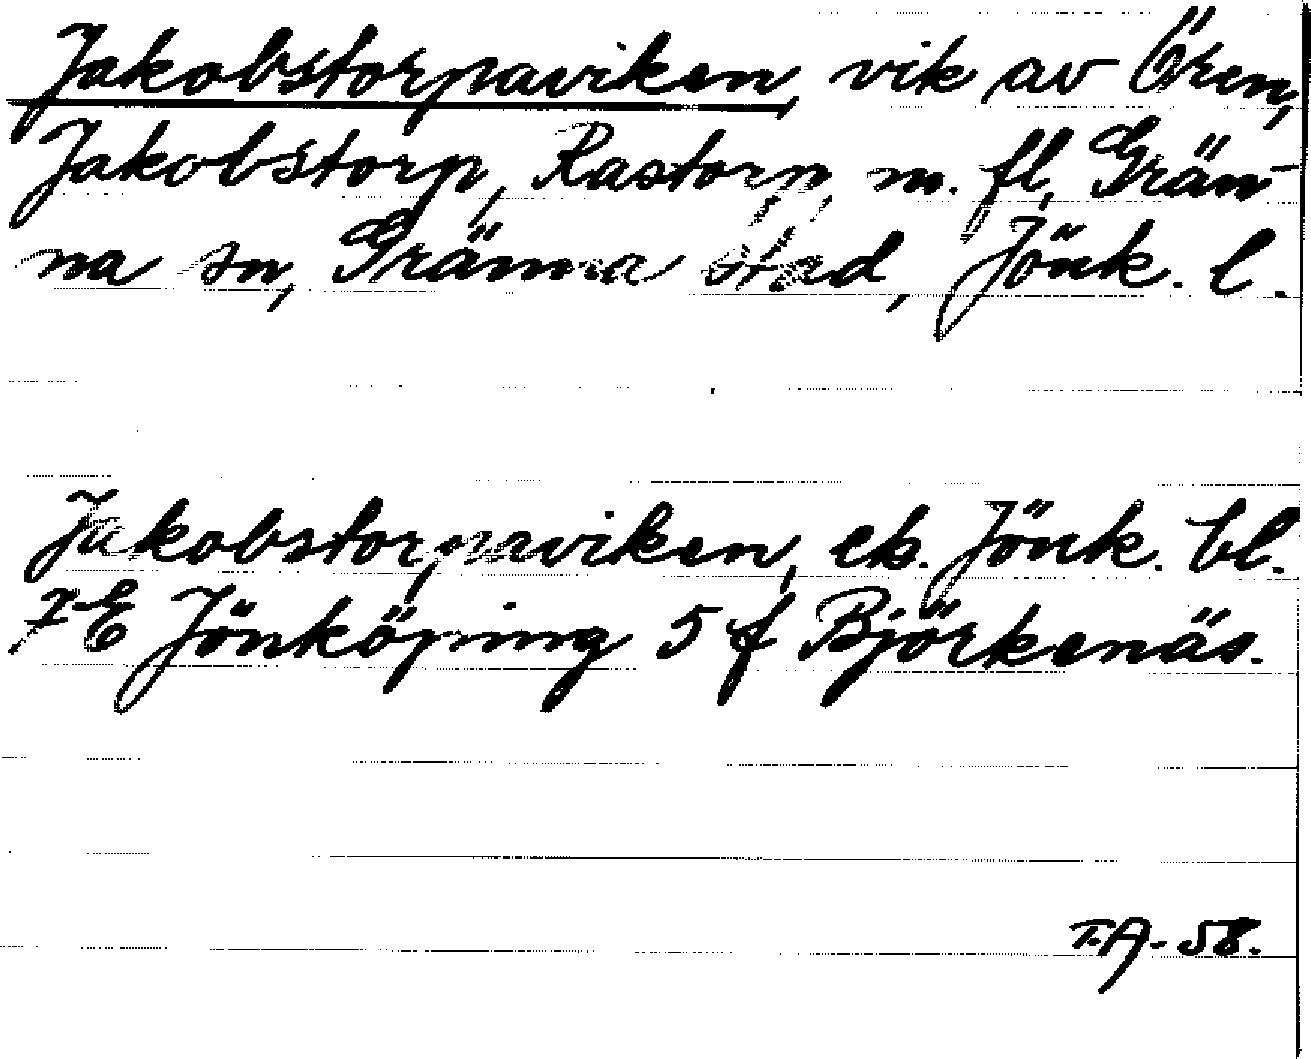 Jakobstorpaviken, vik av Ören,
Jakobstorp, Rastorp, m. fl., Grän-
na sn, Gränna stad, Jönk. l.
Jakobstorpaviken, ek. Jönk. bl.
7E Jönköping 5 f Björkenäs.
T.A-58.